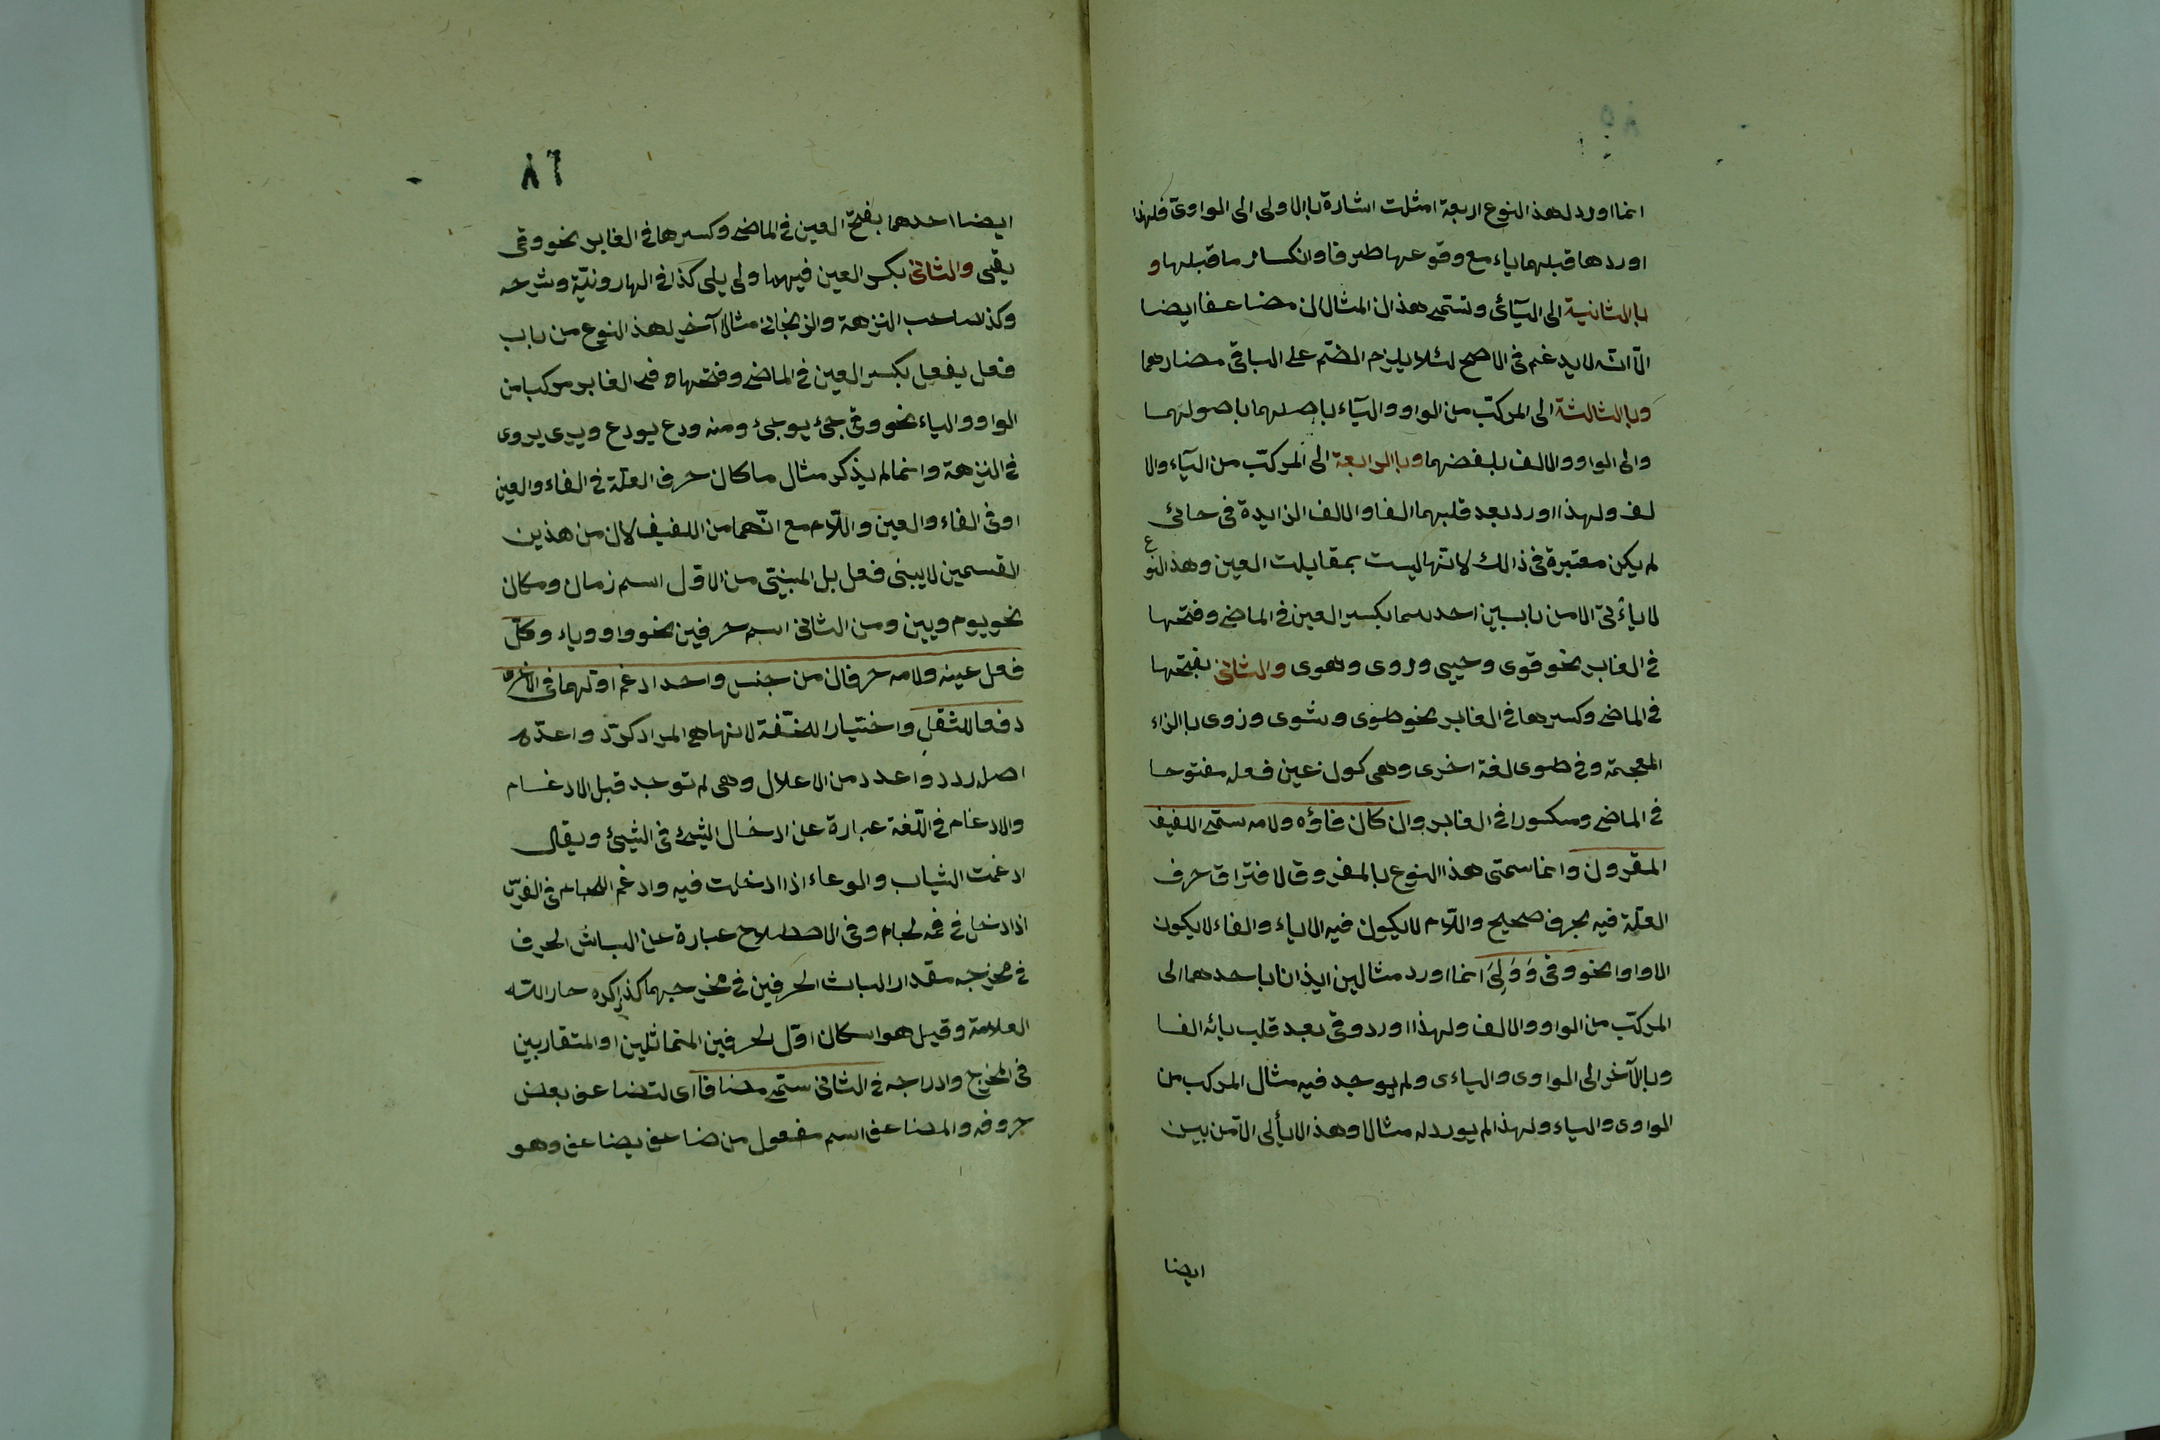 انما اورد لهذ النوع اربعة امثلت اشارة بالاولى الى الواوىّ فلهذا
اوردها قبلهما ياء مع وقوعها طرفا وانكسار ما قبلها و
بالثانية الى اليآئى وتسمى هذان المثالان مضاعفا ايضا
الّا انّه لا يدغم فى الاصح لئلا يلزم الضّم على الباقى مضارهما
وبالثالثة الى المركّب من الواو واليآء باصلهما باصولهما
والى الواو والالف بلفضهما وبالرابعة الى المركّب من اليآء والا
لف ولهذا اورد بعد قلبهما الفا والالف الزايدة فى حائى
لم يكن معتبرة فى ذالك لانها ليست بمقابلت العين وهذ النوع
لا يأتىّ الا من بابين احدهما بكسر العين فى الماضى وفتحها
فى الغابر نحو قوى وحيى وروى وهوى والثانى بفتحها
فى الماضى وكسرها فى الغابر نحو طوى وشوى وزوى بالزاء
المعجمة وفى طوى لغة اخرى وهى كون عين فعله مفتوحا
فى الماضى ومكسورا فى الغابر وان كان فاؤه ولامه ستمى اللفيف
المقرون وانما سمتى هذا النوع بالمفروق لافتراق حرف
العلّة فيه بحرف صحيح واللّام لا يكون فيه الا ياء والفاء لا يكون
الا واوا نحو وقى وَوَلِىَ انما اورد مثالين ايذانا باحدهما الى
المركّب من الواو والالف ولهذا اورد وقى بعد قلب يائه الفا
وبالآخر الى الواوى والياءى ولم يوجد فيه مثال المركب من
الواوى والياء ولهذا لم يورد له مثالا وهذ الا يألى الآ من بين
ايضا
٨٦
ايضا احدهما بفتح العين فى الماضى وكسرها فى الغابر نحو وقى
يقى والثانى بكسر العين فيهما ولى يلى كذا فى الهارونيّة وشرحه
وكذ صاحب النزهة والزنجانى مثالا آخر لهذ النوع من باب
فعل يفعل بكسر العين فى الماضى وفتحها وفى الغابر مركبا من
الواو والياء نحو وجئ يوجئ ومنه ودع يودع ويرى يروى
فى النزهة وانما لم يذكر مثال ما كان حرف العلّة فى الفاء والعين
اوفى الفاء والعين واللّام مع انّهما من اللفيف لان من هذين
القسمين لا يبنى فعل بل المبنتى من الاوّل اسم زمان ومكان
نحو يوم ويين ومن الثانى اسم حرفين نحو واو وياء وكلّ
فعل عينه ولامه حرفان من جنس واحد ادغم اوّلهما فى الاخره
دفعا للثقل واختيارا للخّفة لانها هى المراد كردّ واعدّه
اصله ردد واعدد من الاعلال وهى لم توجد قبل الادغام
والادغام فى اللّغة عبارة عن ادخال الشئ فى الشيئ ويقال
ادغمت الثياب والوعاء اذا ادخلت فيه وادغم اللجام فى الفرس
اذا دخل فى فمه لجام وفى الاصطلاح عبارة عن الباث الحرف
فى مخرجه مقدار الباث الحرفين فى مخرجهما كذا ذكره جار اللّه
العلامة وقيل هو اسكان اوّل الحرفين المتماثلين او المتقاربين
فى المخرج وادراجه فى الثانى ستمى مضافا اى لتضاعف بعض
حروفه والمضاعف اسم مفعول من ضاعف يضاعف وهو